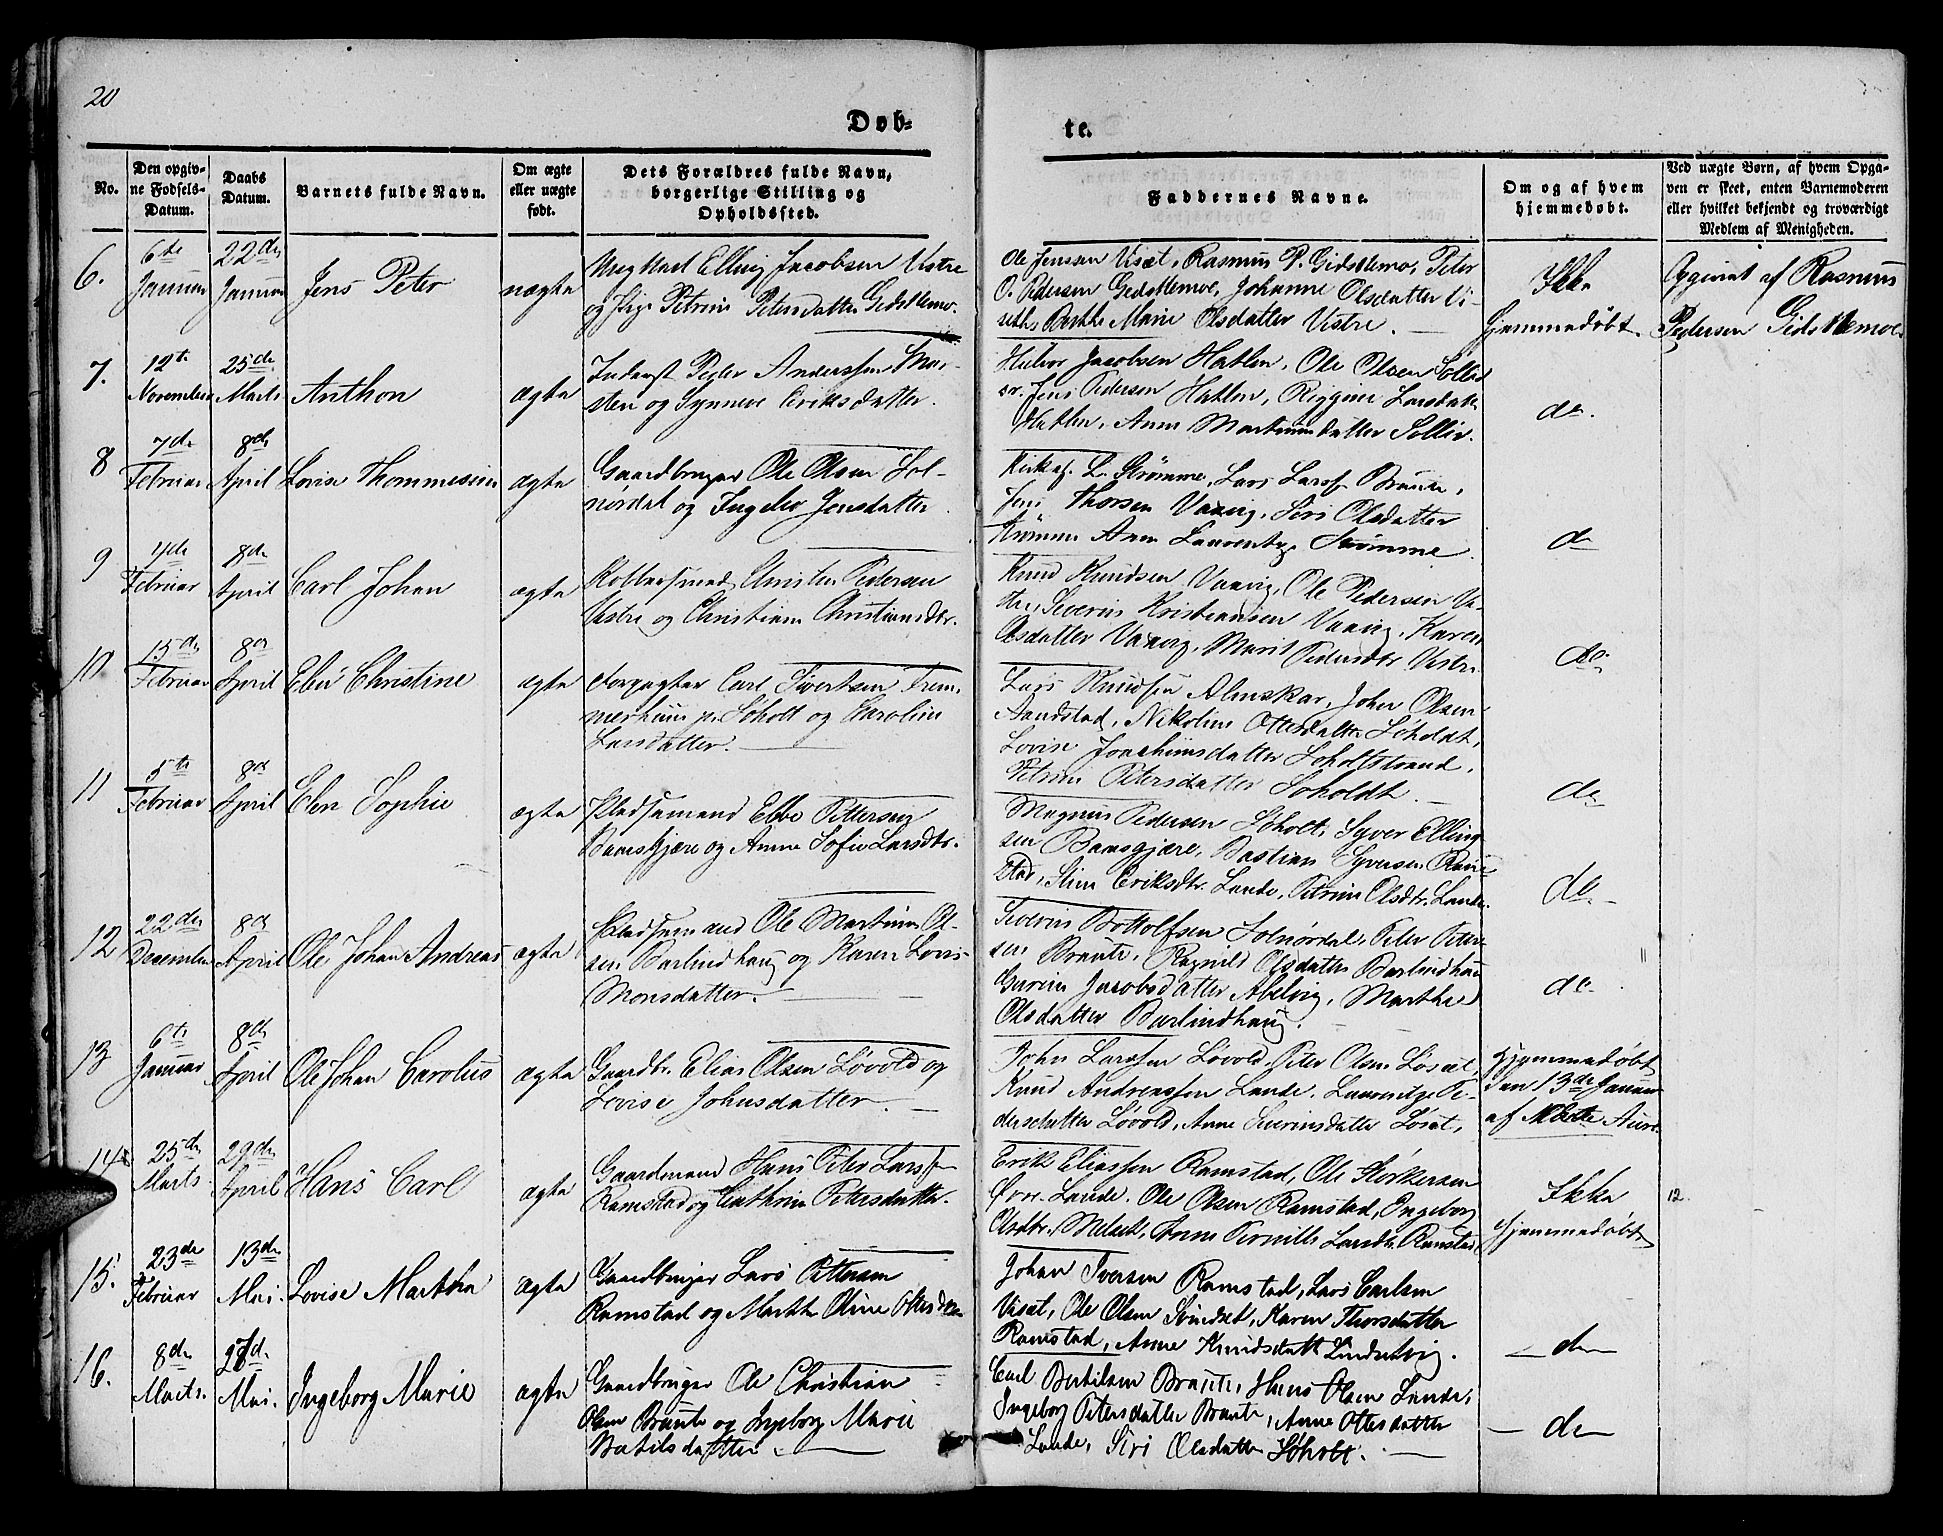 20
Døb-
te.
No.
Den opgiv-
ne Fødsels-
Datum.
Daabs
Datum.
Barnets fulde Navn.
Om ægte
eller uægte
født.
Dets Forældres fulde Navn,
borgerlige Stilling og
Opholdssted.
Faddernes Navne.
Om og af hvem
hjemmedøbt.
Ved uægte Børn, af hvem Opga-
ven er skeet, enten Barnemoderen
eller hvilket bekjendt og troværdigt
Medlem af Menigheden.
6.
6te
Januar
22de
Januar
Jens Peter
uægte
Ungkarl Elling Jacobsen Vistre
og Pige Petrine Petersdatter Gidskemo.
Ole Jenssen Viset, Rasmus P. Gidskemo, Peter
O. Pedersen Gidskemoe, Johanne Olsdatter Vi-
seth, Berthe Marie Olsdatter Vistre.
Ikke
hjemmedøbt.
Opgivet af Rasmus
Pedersen Gidskemoe
7.
12te
November
25de
Marts
Anthon
ægte
Inderst Peder Anderssen
sten og Synneve Eriksdatter.
Jacobsen Hatlen, Ole Olsen
Jens Pedersen Hatlen, Larsdatter
Hatlen, Anne Martinusdatter
do.
8
7de
Februar
8de
April
Lovise Thommesine
ægte
Gaardbruger Ole Olsen Sol-
nørdal og Ingebor Jensdatter.
Kirks. L. Strømme, Lars Larss. Braute,
Jens Thorsen Vaavig, Siri Olsdatter
Strømme Anne Laurentze Strømme.
do
9
4de
Februar
8de
April
Carl Johan
ægte
Kobbersmed Christen Pedersen
Vestre og Christiane Christiansdtr.
Knud Knudsen Vaavig, Ole Pedersen Ve-
stre, Severin Kristiansen Vaavig, Karen
Olsdatter Vaavig, Marit Pedersdtr Vestre
do.
10
15de
Februar
8de
April
Elen Christine
ægte
Forpagter Carl Sivertsen Frem-
merhuus p. Søholt og Karoline
Larsdatter.
Lars Knudsen Almskar, John Olsen
Aandstad, Nikoline Ottesdatter Søholdt,
Lovise Joachimsdatter Søholtstrand,
Petrine Petersdatter Søholdt.
do
11
5te
Februar
8de
April
Elen Sophie
ægte
Pladsemand Ebbe Pettersen
Bamsgjære og Anne Sofie Larsdtr.
Magnus Pedersen Søholt, Syver Elling-
sen Bamsgjære, Bastian Syversen
Stine Eriksdtr. Lande, Petrine Olsdtr. Lande.
do.
12
22de
December
8de
April
Ole Johan Andreas
ægte
Pladsemand Ole Martinus Ol-
sen Barlindhaug og Karen Lovise
Monsdatter.
Severin Bottolfsen Solnørdal, Peter Peter-
sen Braute, Ragnild Olsdatter Barlindhaug
Gurine Jacobsdatter Abelvig, Marthe
Olsdatter Barlindhaug.
do.
13
6te
Januar
8de
April
Ole Johan Carolus
ægte
Gaardbr. Elias Olsen Løvold og
Lovise Johnsdatter.
John Larssen Løvold, Peter Olsen Løset,
Knud Andreassen Lande, Laurentze Pe-
dersdatter Løvold, Anne Severinsdatter Løset,
Hjemmedøbt
den 13de Januar
af Mette Aure
14
25de
Marts
29de
April
Hans Carl
ægte
Gaardmand Hans Peter Larssen
Ramstad og Cathrine Petersdatter.
Erik Eliassen Ramstad, Ole Størkersen
Øvr. Lande, Ole Olsen Ramstad, Ingeborg
Olsdtr. Melset, Anne Pernille Larsdtr. Ramstad
Ikke
Hjemmedøbt
12
15.
23de
Februar
13de
Mai.
Lovise Marthea
ægte
Gaardbruger Lars Pettersen
Ramstad og Marthe Oline
Johan Iversen Ramstad, Lars Carlsen
Viset, Ole Olsen Svindset, Karen Thorsdatter
Ramstad, Anne Knudsdatt Lindsetvig.
do
16.
8de
Marts.
27de
Mai.
Ingeborg Marie
ægte
Gaardbruger Ole Christian
Olsen Braute og Ingeborg Marie
Bertilsdatter
Carl Bertilsen Braute, Hans Olsen Lande,
Ingeborg Petersdatter Braute, Anne Ottesdatter
Lande, Siri Olsdatter Søholt.
do